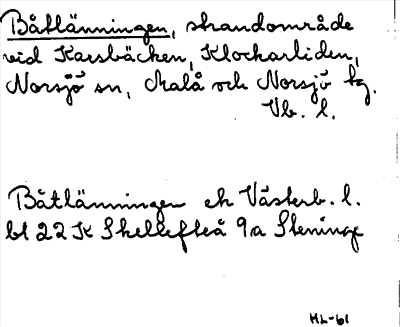 Båtlänningen, strandområde
vid Karsbäcken, Klockarliden,
Norsjö sn, Malå och Norsjö tg.
Vb. l.
Båtlänningen ek Västerb. l.
bl 22 K Skellefteå 9a Stenings
HL-61